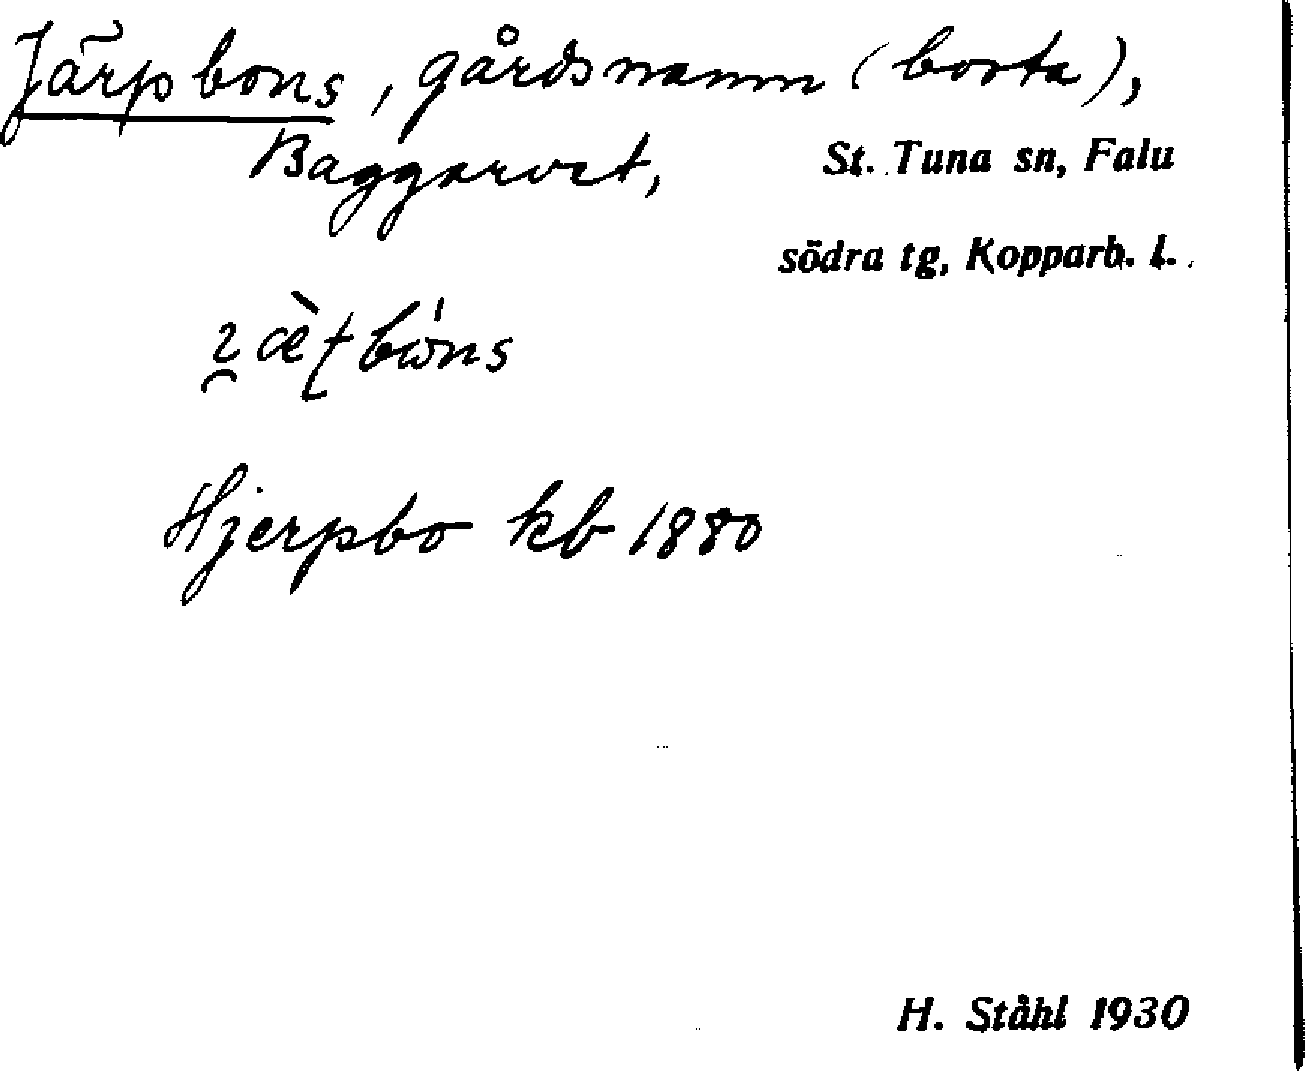 Järpbons, gårdsnamn (borta),
Baggarvet,
St. Tuna sn, Falu
södra tg, Kopparb. l.
Hjerpbo kb 1880
H. Ståhl 1930